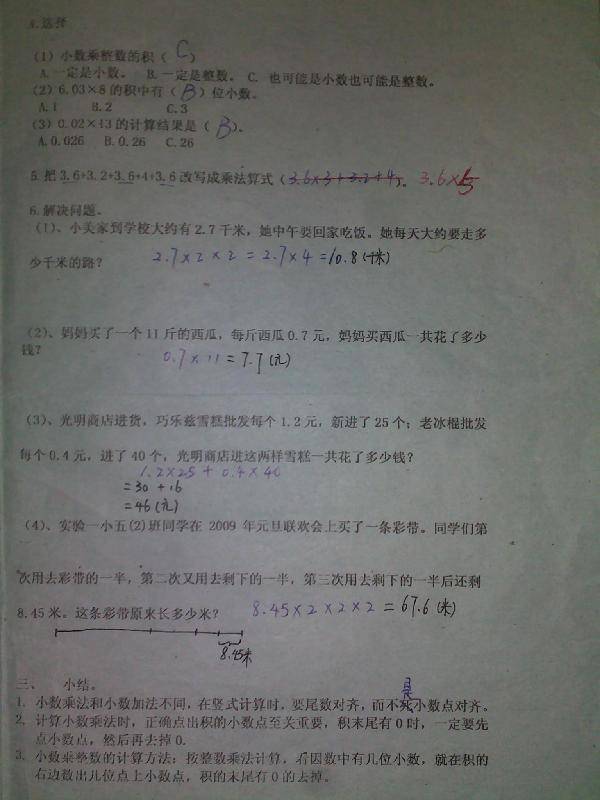 4.选择
(1)小数乘整数的积( C )
A.一定是小数。 B.一定是整数。 C. 也可能是小数也可能是整数。
(2)6.03×8的积中有( B )位小数。
A.1 B.2 C.3
(3)0.02×13的计算结果是( B )。
A.0.026 B.0.26 C.26
5.把3.6+3.2+3.6+4+3.6改写成乘法算式(3.6×3+3.2+4)。 3.6×5
6.解决问题。
(1)、小美家到学校大约有2.7千米,她中午要回家吃饭。她每天大约要走多
少千米的路? 2.7×2×2=2.7×4=10.8(千米)
(2)、妈妈买了一个11斤的西瓜,每斤西瓜0.7元,妈妈买西瓜一共花了多少
钱? 0.7×11=7.7(元)
(3)、光明商店进货,巧乐兹雪糕批发每个1.2元,新进了25个;老冰棍批发
每个0.4元,进了40个,光明商店进这两样雪糕一共花了多少钱?
1.2×25+0.4×40
=30+16
=46(元)
(4)、实验一小五(2)班同学在 2009 年元旦联欢会上买了一条彩带。同学们第
次用去彩带的一半,第二次又用去剩下的一半,第三次用去剩下的一半后还剩
8.45米。这条彩带原来长多少米? 8.45×2×2×2=67.6(米)
8.45米
三、 小结。
是
1. 小数乘法和小数加法不同,在竖式计算时,要尾数对齐,而不是小数点对齐。
2. 计算小数乘法时,正确点出积的小数点至关重要,积末尾有0时,一定要先
点小数点,然后再去掉0.
3. 小数乘整数的计算方法:按整数乘法计算,看因数中有几位小数,就在积的
右边数出几位点上小数点,积的末尾有0的去掉。